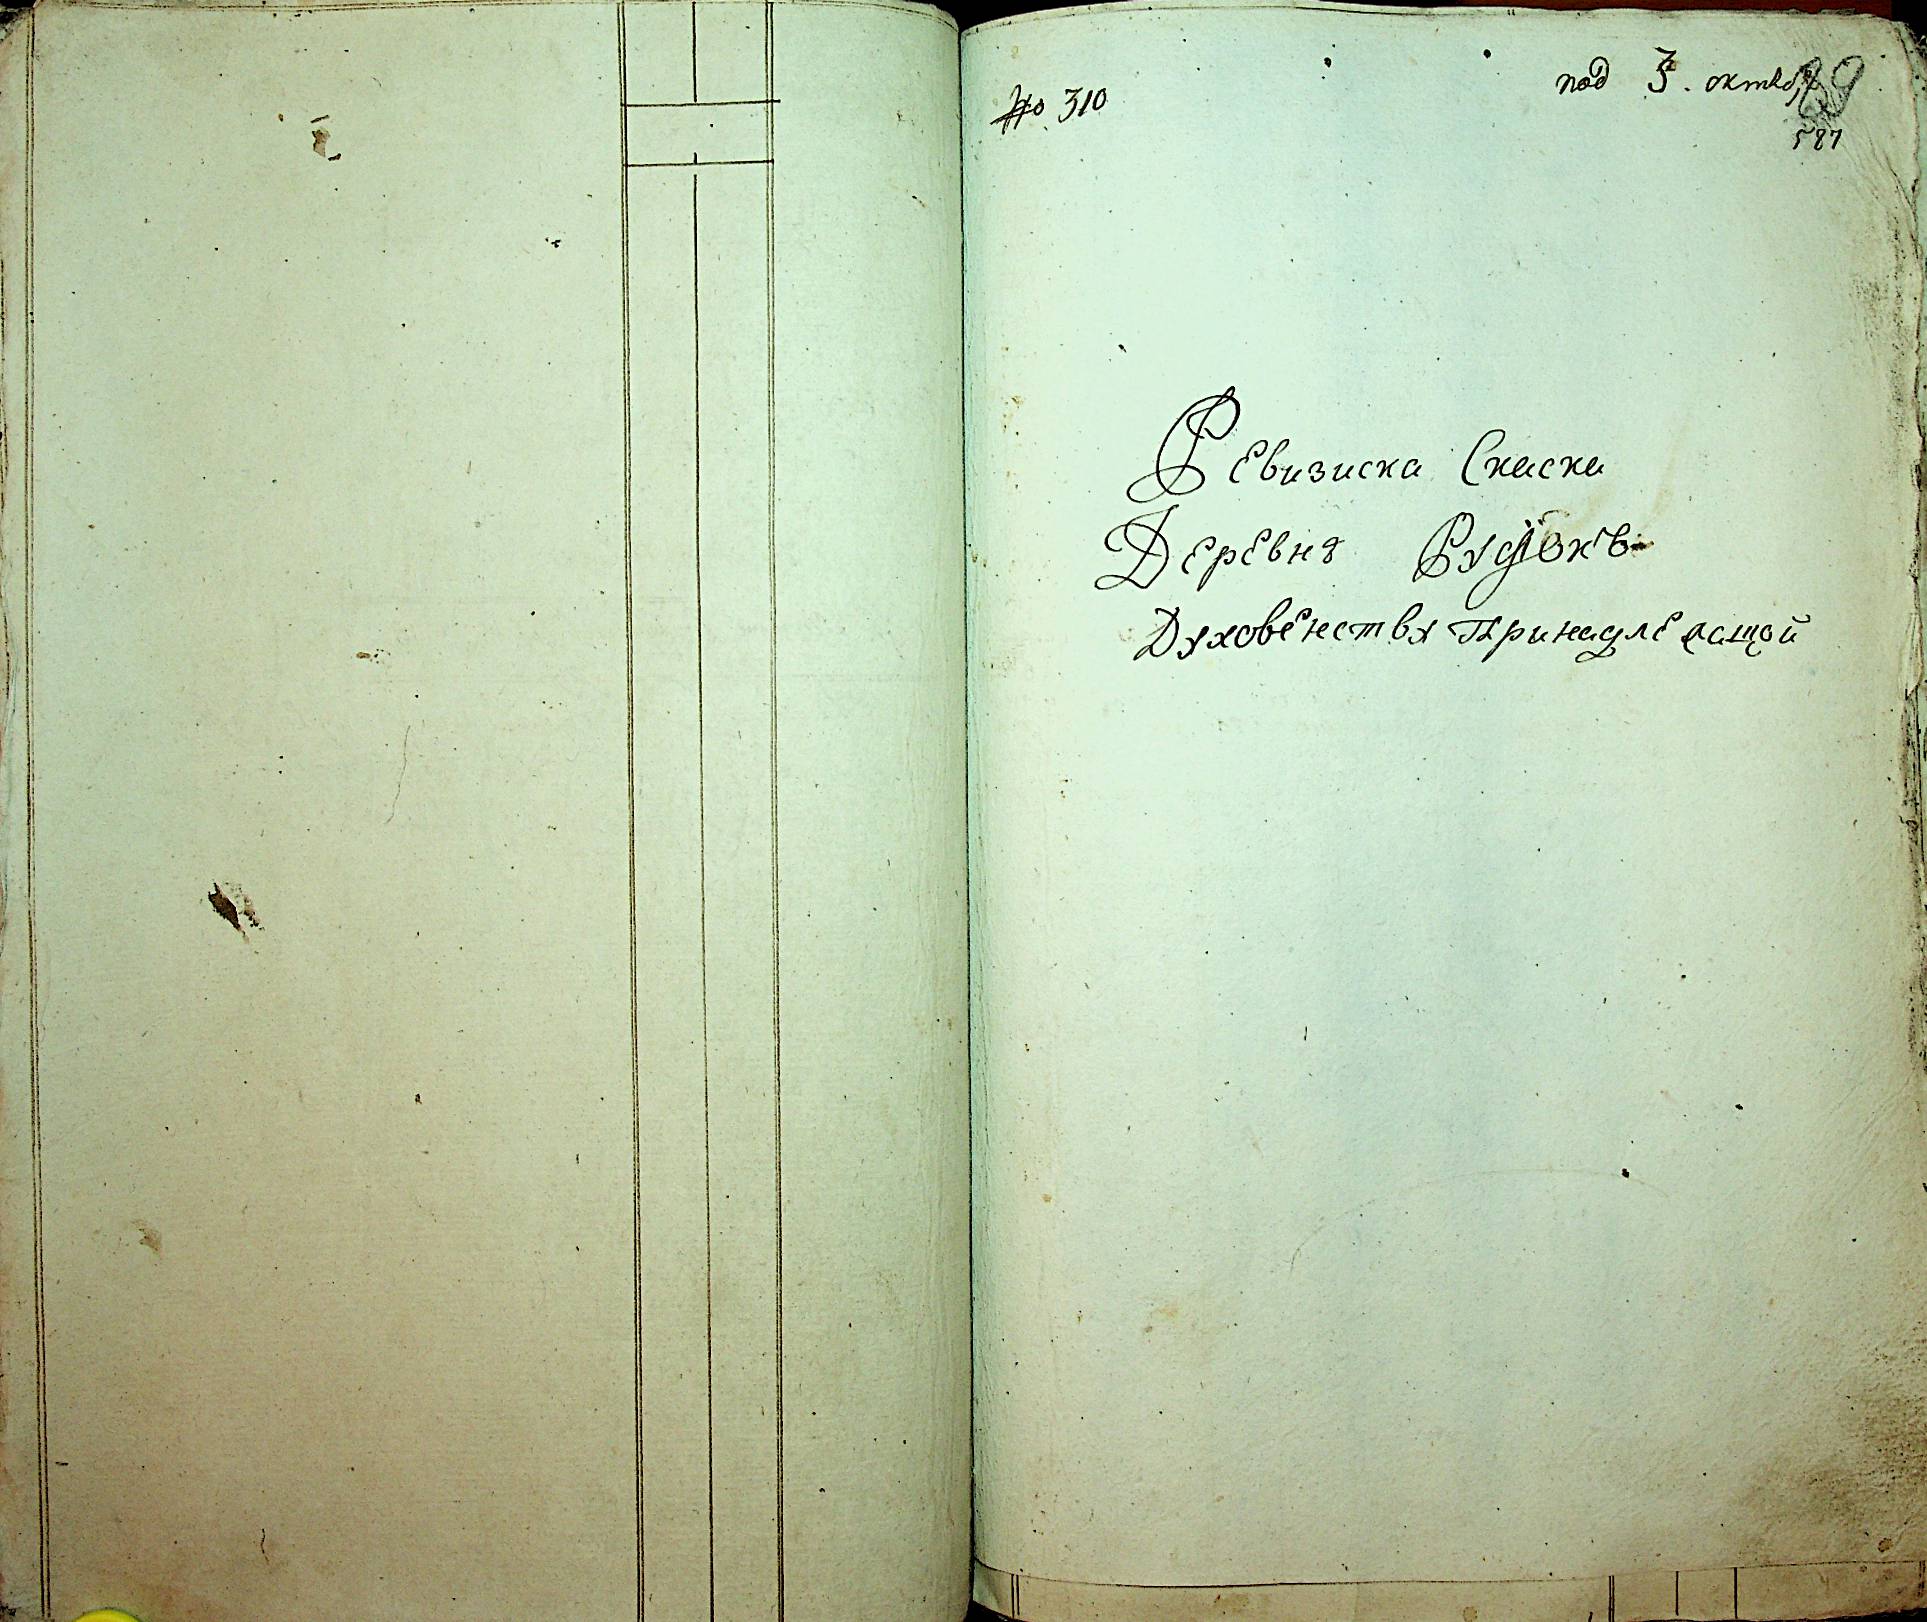 № 310
под 3. октября
587
Ревизиска Скаска
Деревня
Духовенства Принадлежащой